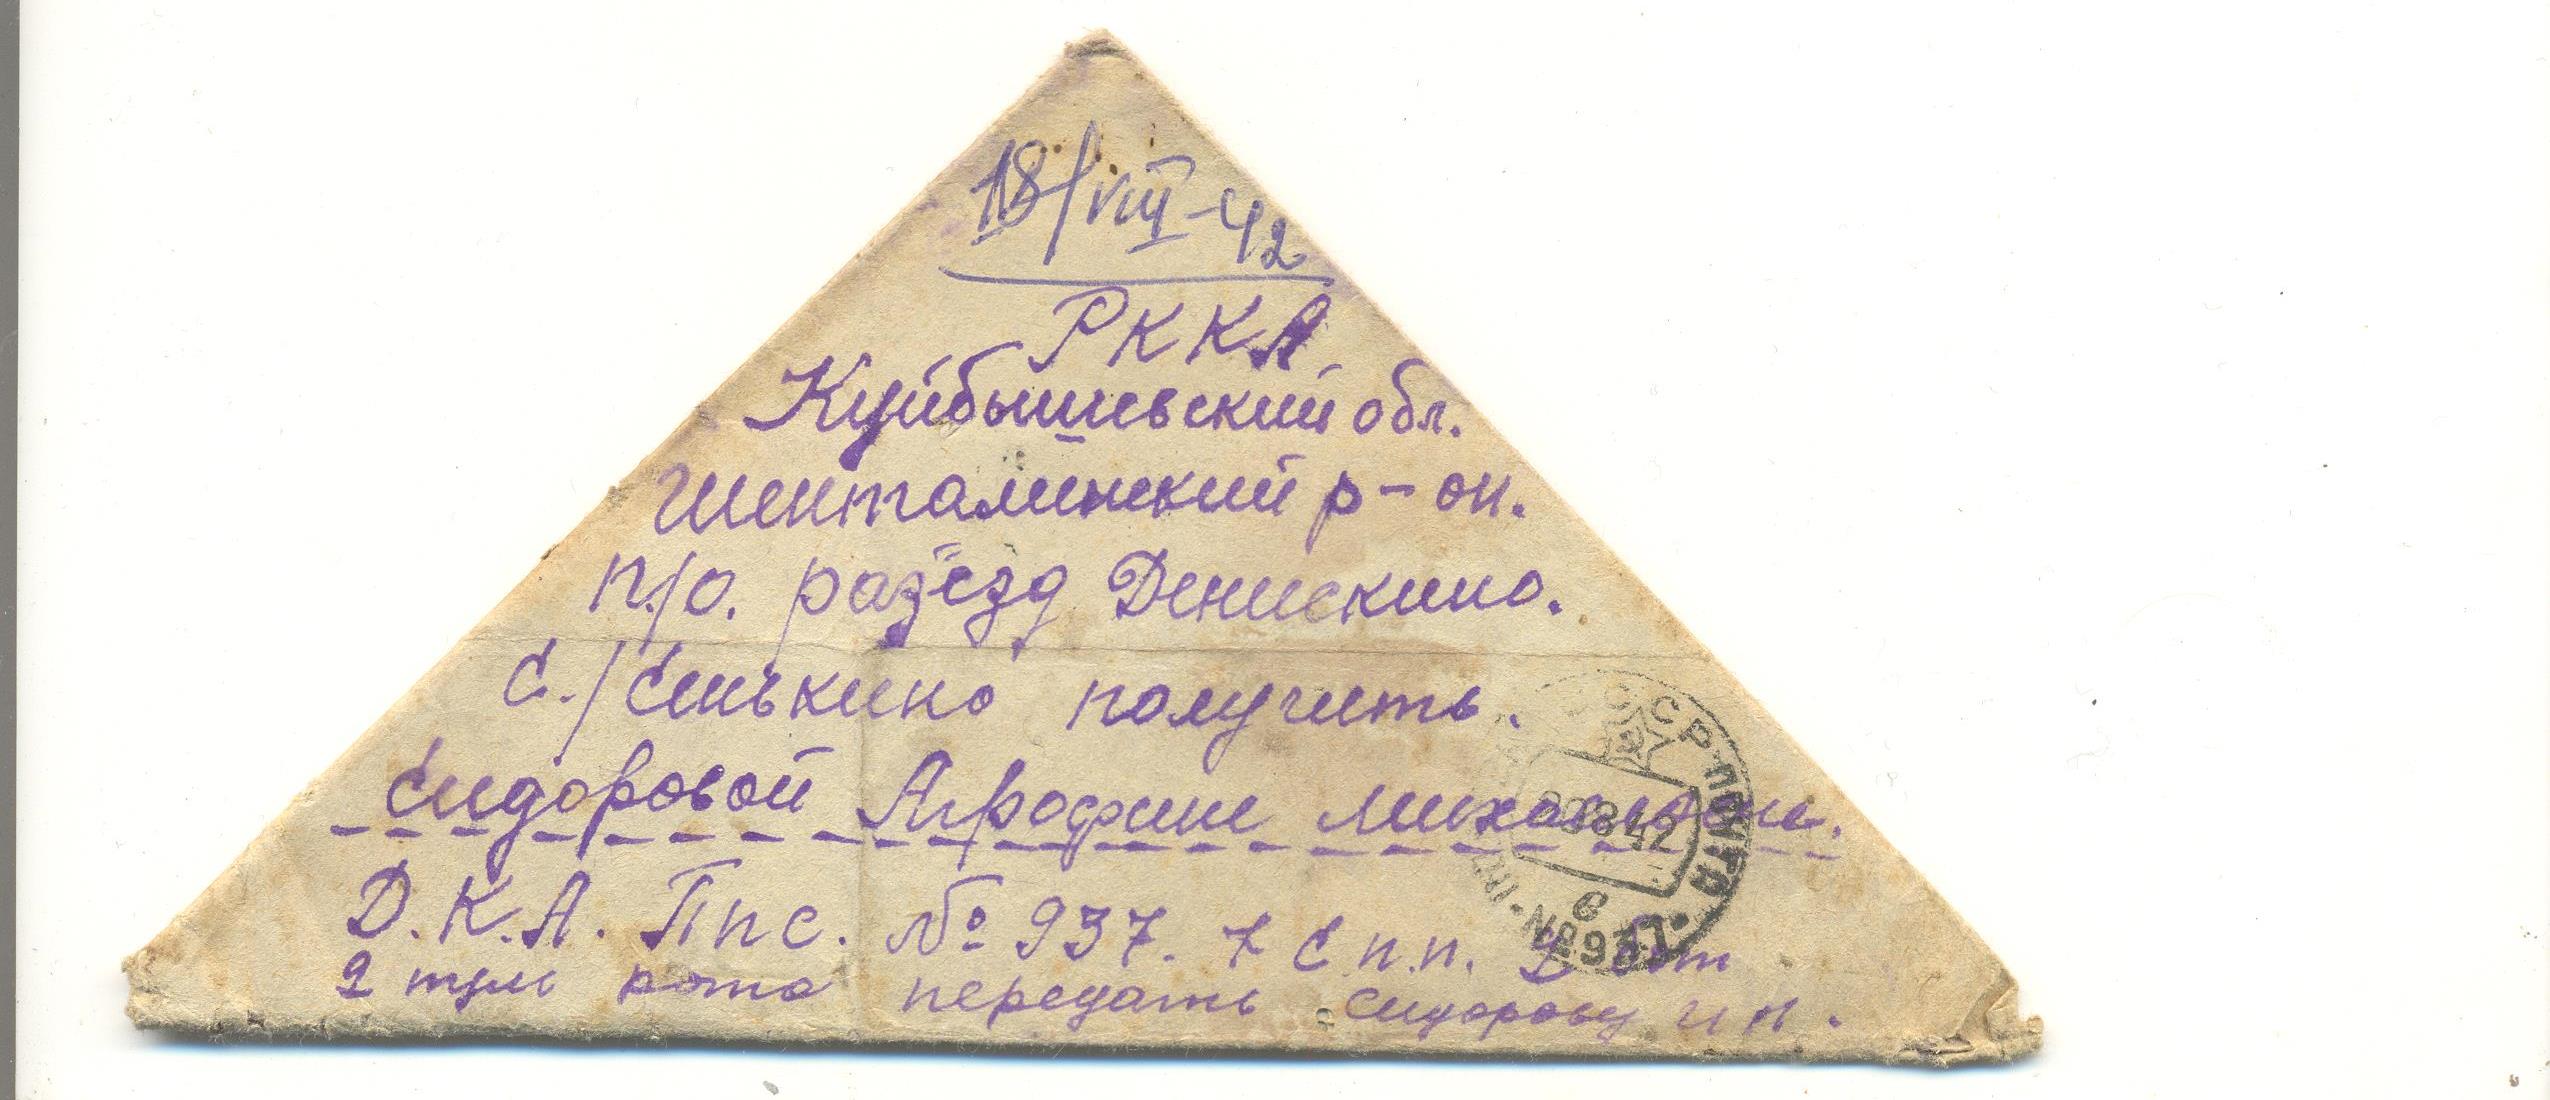 18/VIII-42
РККА
Куйбышевский обл.
Шенталинский р-он.
п/о. разъезд Денискино.
с./Сенькино получить.
Сидоровой Агрофине Михайловне.
Д.К.А. Ппс. № 937. 7 с.п.п. 2 бат
2 пул рота передать Сидорову и п.
СССР ПОЧТА
42
ППС №937